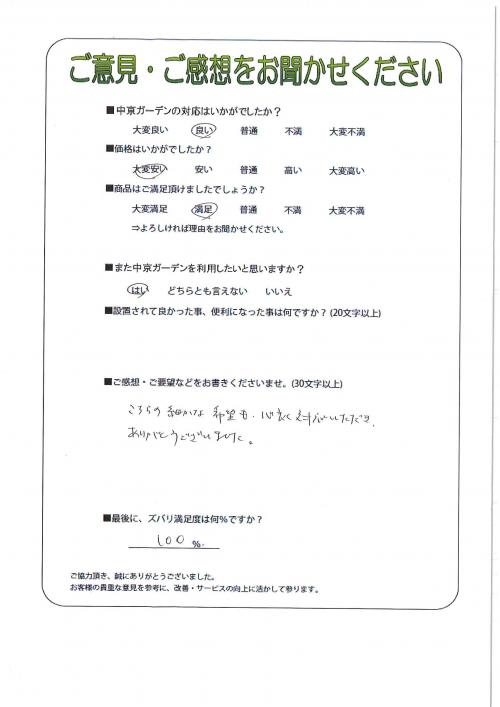 ご意見・ご感想をお聞かせください
■中京ガーデンの対応はいかがでしたか？
大変良い 良い 普通 不満 大変不満
■価格はいかがでしたか？
大変安い 安い 普通 高い 大変高い
■商品はご満足頂けましたでしょうか？
大変満足 満足 普通 不満 大変不満
⇒よろしければ理由をお聞かせください。
■また中京ガーデンを利用したいと思いますか？
はい どちらとも言えない いいえ
■設置されて良かった事、便利になった事は何ですか？(20文字以上)
■ご感想・ご要望などをお書きくださいませ。(30文字以上)
こちらの細かな希望も、心良く対応いただき、
ありがとうございました。
■最後に、ズバリ満足度は何%ですか？
100 %
ご協力頂き、誠にありがとうございました。
お客様の貴重な意見を参考に、改善・サービスの向上に活かして参ります。